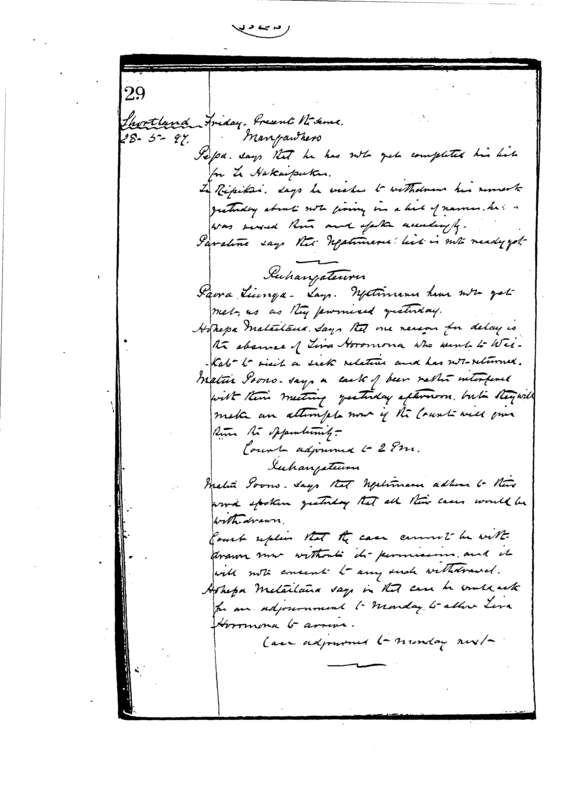 29
Shortland Friday. Present the same.
28-5-97.
Mangawhero
Pepa. says that he has not yet completed his list
for Te Hakaipuku.
Te Ripikoi. says he wishes to withdraw his remark
yesterday about not giving in a list of names. he
was vexed then and spoke accordingly.
Paraline says the Ngatimaru list is not ready yet
Ruhangateuru
Paora Tiunga - Says. Ngatimaru have not yet
met us as they promised yesterday.
Hohepa Mataitaua. Says that one reason for delay is
the absence of Lina Horomona who went to Wai-
-Kato to visit a sick relative and has not returned.
Matiu Poono - says a cask of beer rather interfered
with their meeting yesterday afternoon, but they will
make an attempt now if the Court will give
them the opportunity-
Court adjourned to 2 Pm.
Ruhangateuru
Matiu Poono - says that Ngatimaru adhere to their
word spoken yesterday that all their cases would be
withdrawn.
Court replies that the case cannot be with-
drawn now without its permission, and it
will not consent to any such withdrawal.
Hohepa Mataitaua says in that case he would ask
for an adjournment to Monday to allow Lina
Horomona to arrive.
Case adjourned to Monday next-